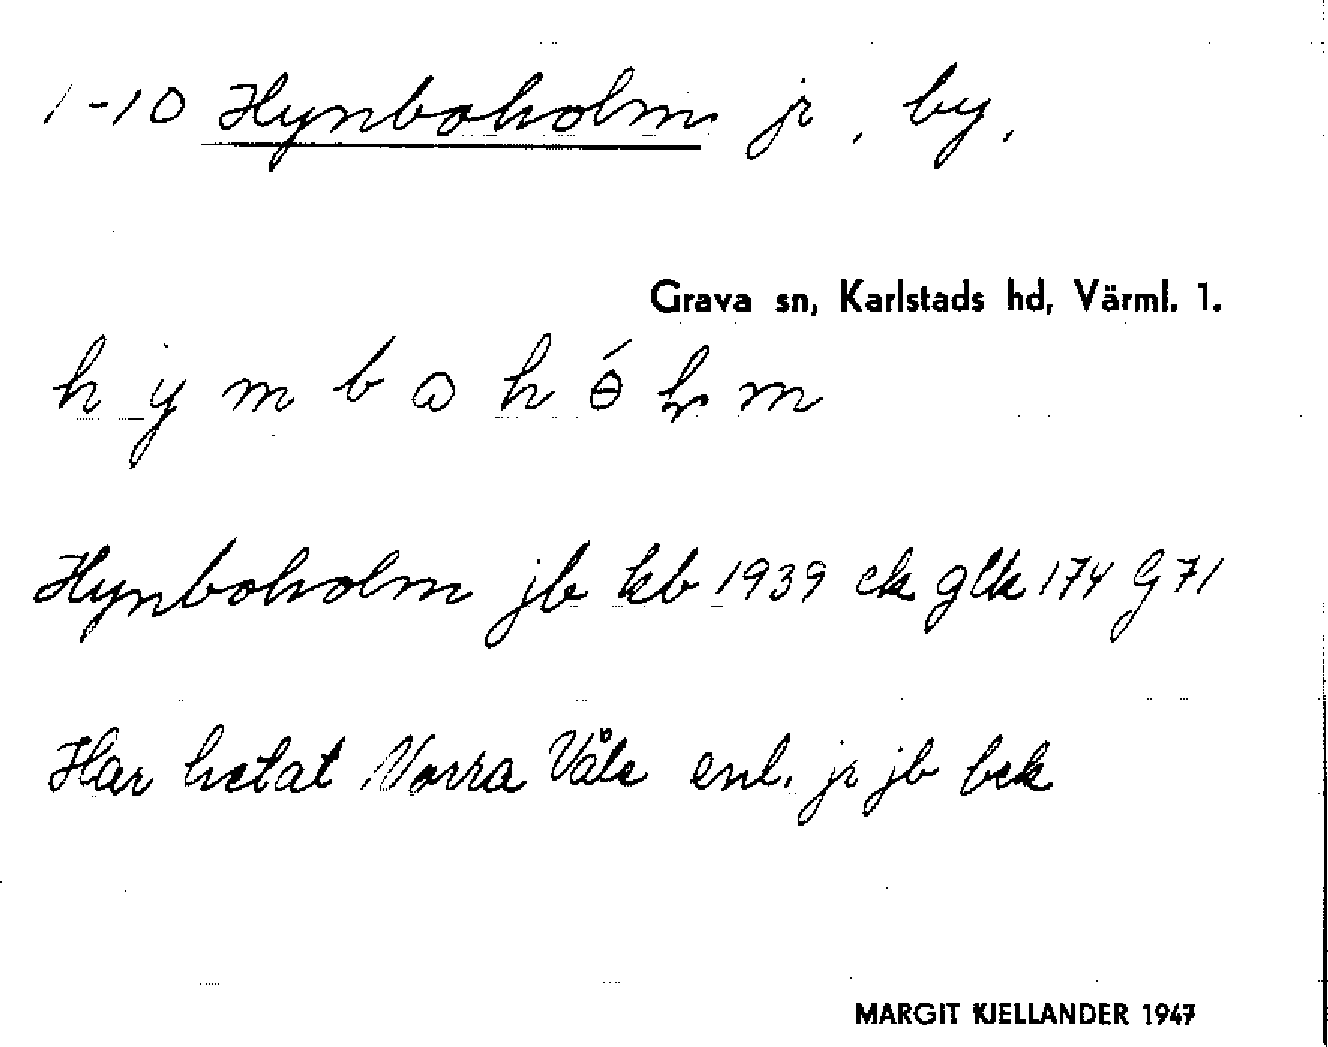 1-10 Hynboholm jr, by,
Grava sn, Karlstads hd, Värml. 1.
Hynboholm jb kb 1939 ek glk 174 G 71
Har hetat Norra Våle enl. jr jb bek
MARGIT KJELLANDER 1947